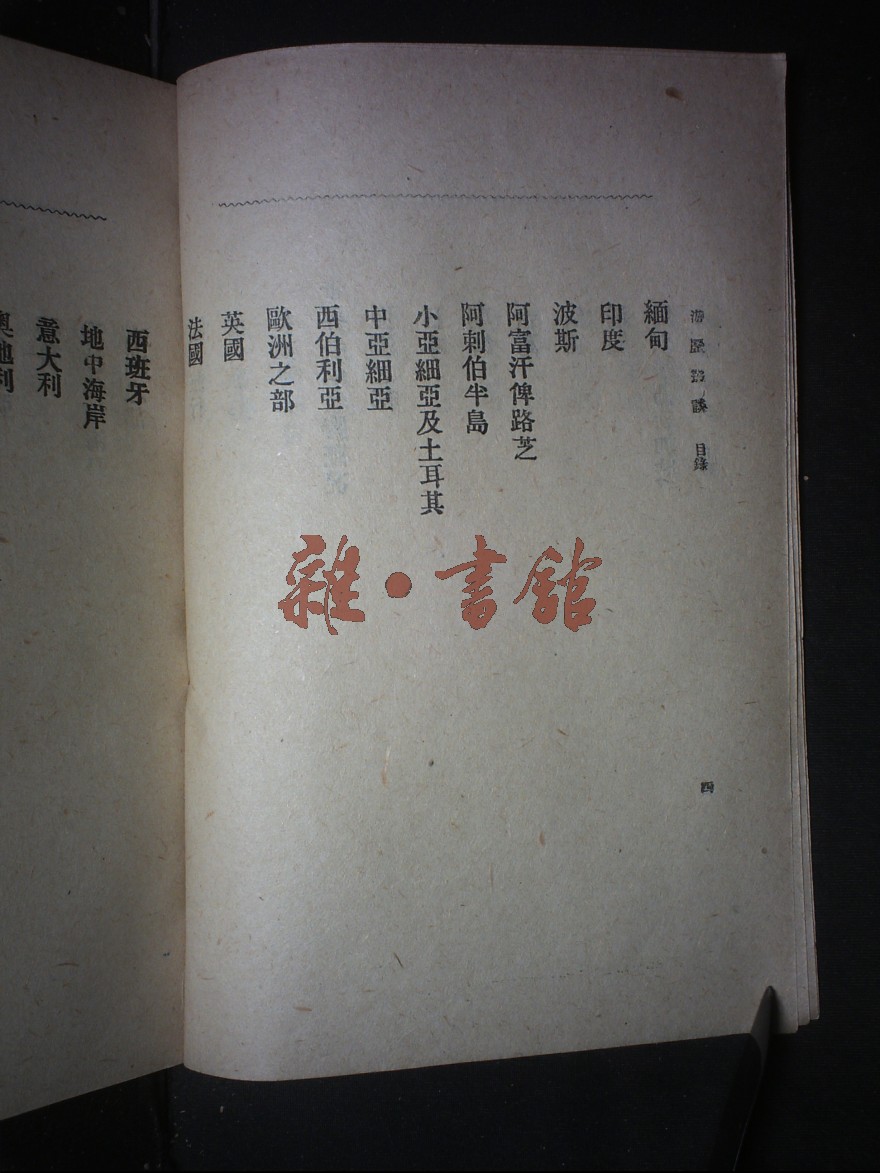 游歷叢談 目錄
緬甸
印度
波斯
阿富汗俾路芝
阿剌伯半島
小亞細亞及土耳其
中亞細亞
西伯利亞
歐洲之部
英國
法國
四
西班牙
地中海岸
意大利
奧地利
雜·書館